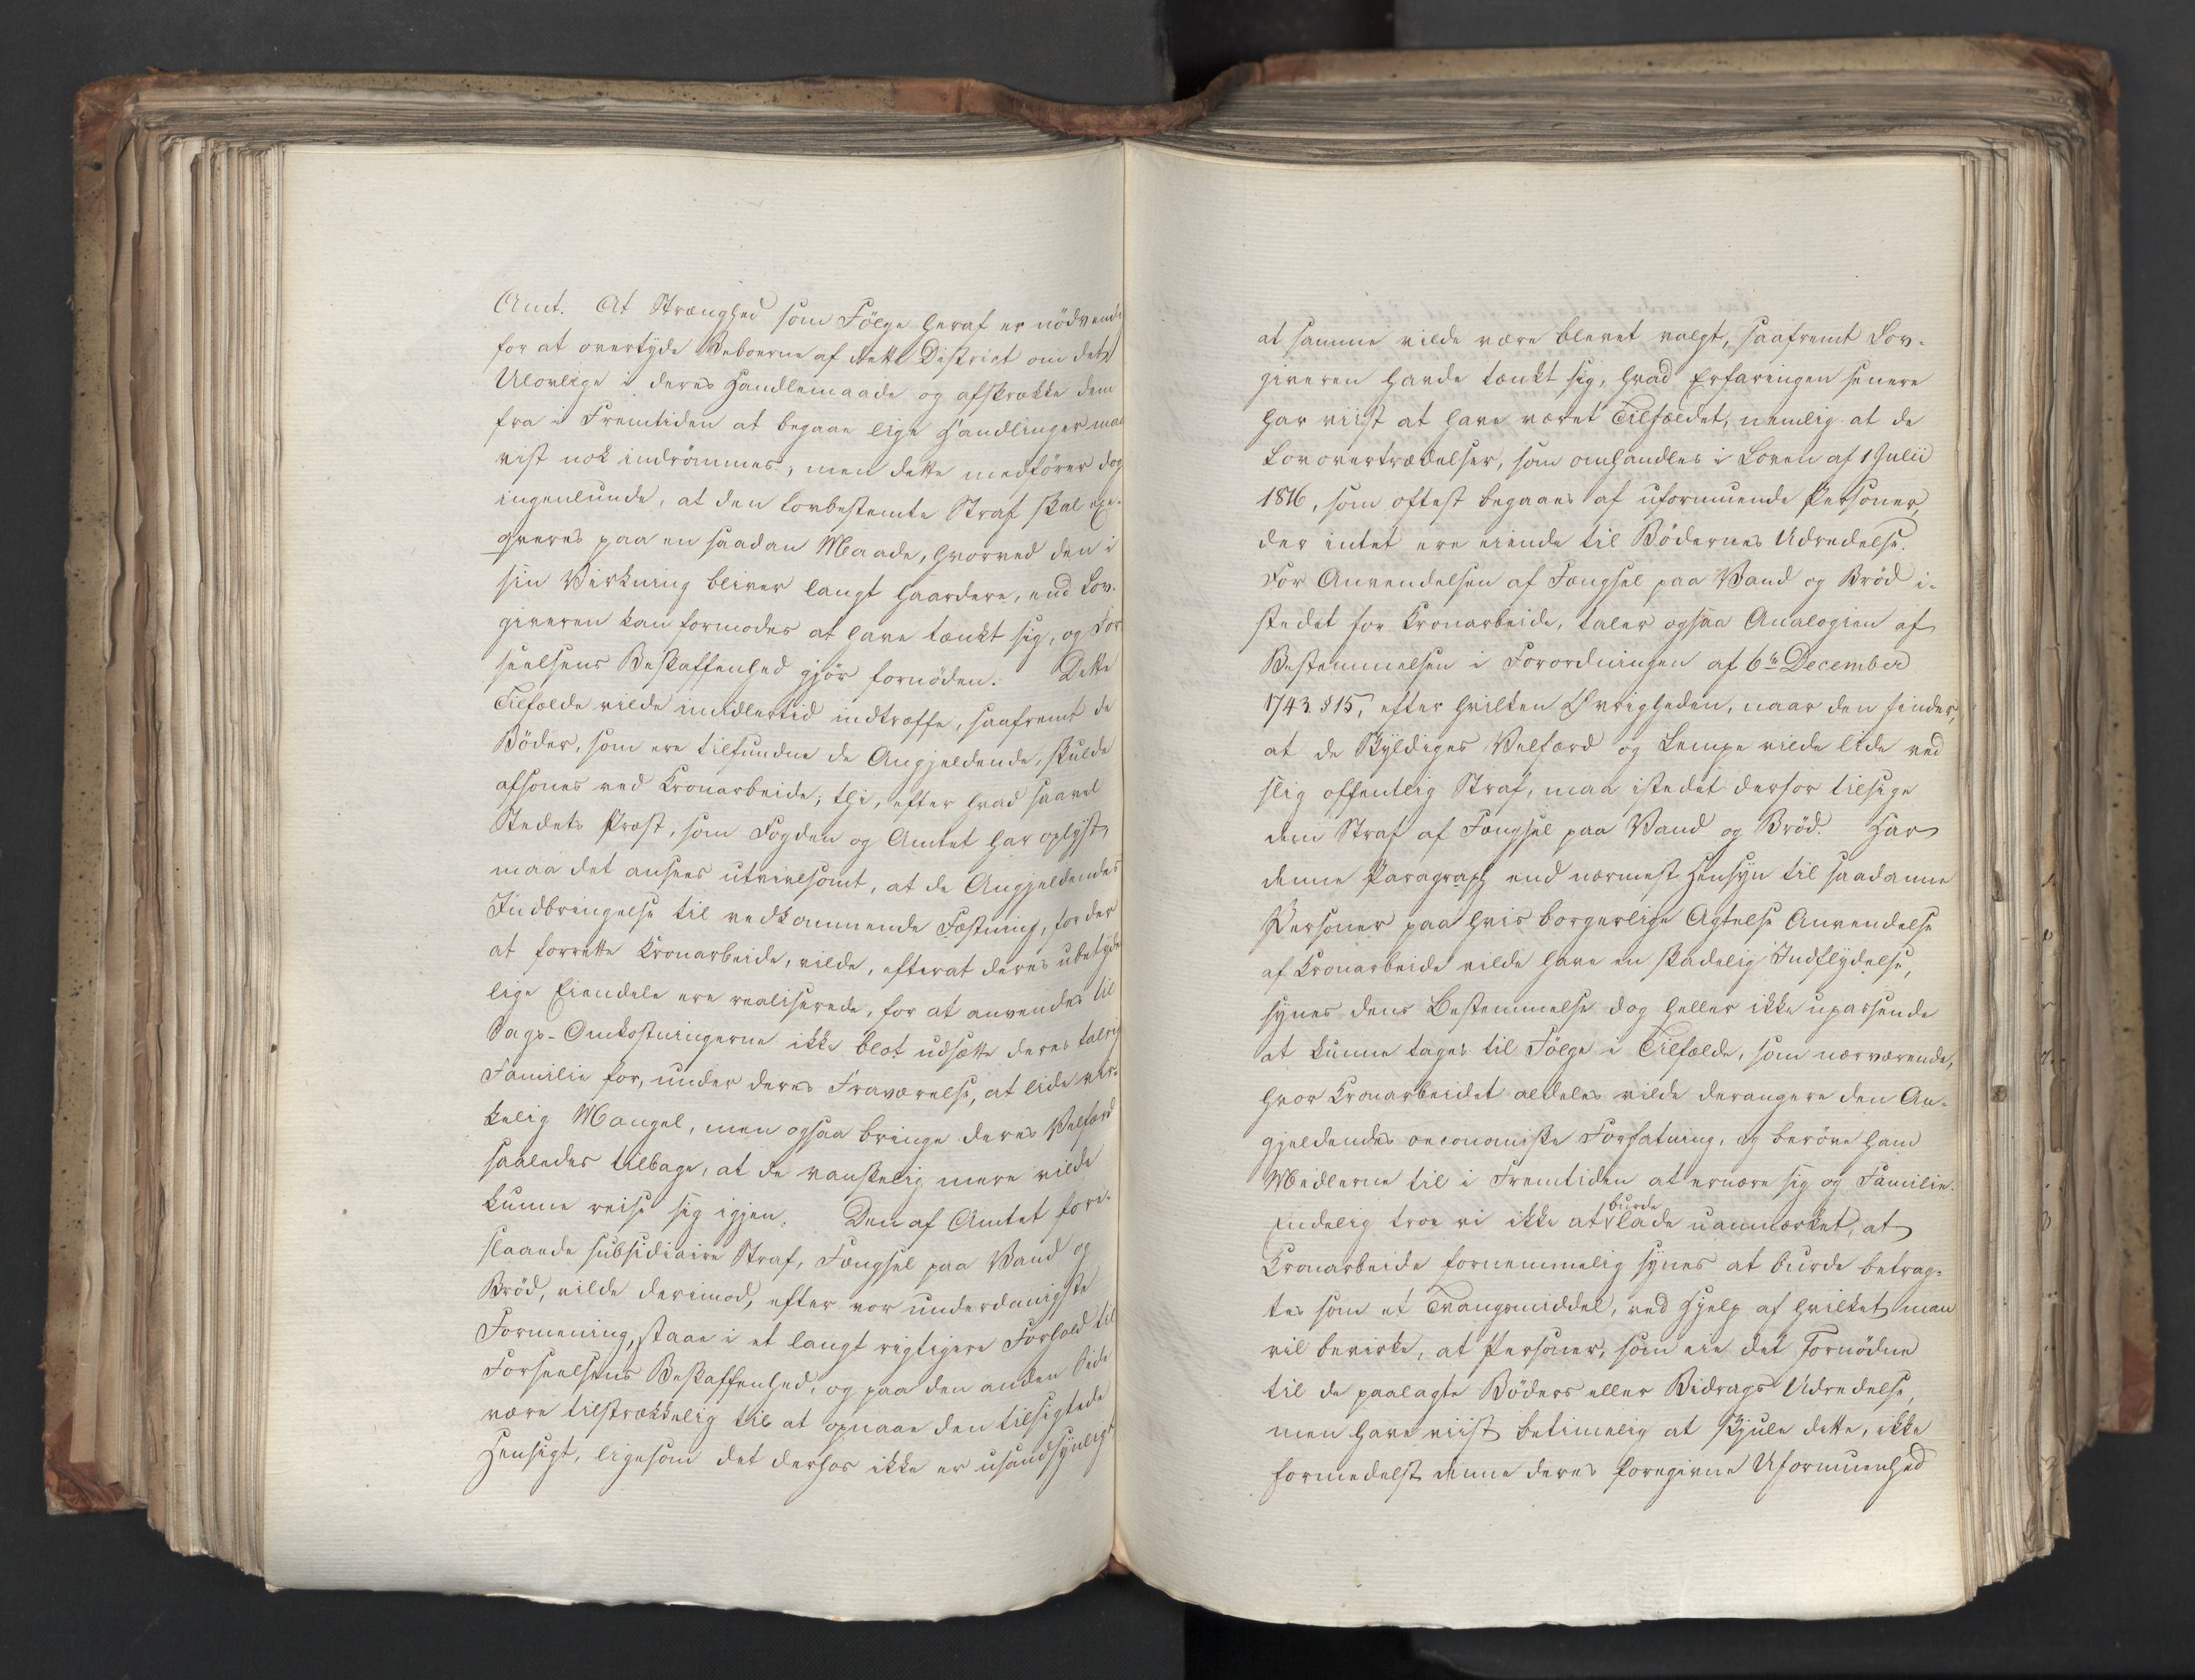 Amt. At Strænghed som Følge heraf er nødvendi
for at overtyde Beboerne af dette District om det
Ulovlige i deres Handlemaade og afskrække dem
fra i Fremtiden at begaae lige Handlinger maa
vist nok indrømmes, men dette medfører dog
ingenlunde, at den lovbestemte Straf skal exe-
qveres paa en saadan Maade, hvorved den i
sin Virkning bliver langt haardere, end Lov-
giveren kan formodes at have tænkt sig, og For
seelsens Beskaffenhed gjør fornöden. Dette
Tilfælde vilde imidlertid indtræffe, saafremt de
Böder, som ere tilfundne de Angjeldende, skulde
afsones ved Kronarbeide; thi, efter hvad saavel
Stedets Præst, som Fogden og Amtet har oplyst
maa det ansees utvivlsomt, at de Angjeldendes
Indbringelse til vedkommende Fæstning, for der
at forrette Kronarbeide, vilde, efterat deres ubetyde
lige Eiendele ere realiserede, for at anvendes til
Sags-Omkostningerne ikke blot udsætte deres talrig
Familie for, under deres Fraværelse, at lide vir-
kelig Mangel, men ogsaa bringe deres Velfærd
saaledes tilbage, at de vanskelig mere vilde
kunne reise sig igjen. Den af Amtet fore-
slaaede subsidiaire Straf, Fængsel paa Vand og
Bröd, vilde derimod, efter vor underdanigste
Formening, staae i et langt rigtigere Forhold til
Forseelsens Beskaffenhed, og paa den anden Side
være tilstrækkelig til at opnaae den tilsigtede
Hensigt, ligesom det derhos ikke er usandsynligt
at samme vilde være blevet valgt, saafremt Lov-
giveren havde tænkt sig, hvad Erfaringen senere
har viist at have været Tilfældet, nemlig at de
Lovovertrædelser, som omhandles i Loven af 1 Julii
1816, som oftest begaaes af uformuende Personer,
der intet ere eiende til Bödernes Udredelse.
For Anvendelsen af Fængsel paa Vand og Bröd i-
stedet for Kronarbeide, taler ogsaa Analogien af
Bestemmelsen i Forordningen af 6te December
1743 § 15, efter hvilken Øvrigheden, naar den finder,
at de Skyldiges Velfærd og Lempe vilde lide ved
slig offentlig Straf, maa istedet derfor tilsige
dem Straf af Fængsel paa Vand og Bröd. Har
denne Paragraph end nærmest Hensyn til saadanne
Personer paa hvis borgerlige Agtelse Anvendelse
af Kronarbeide vilde have en skadelig Indflydelse,
synes dens Bestemmelse dog heller ikke upassende
at kunne tages til Fölge i Tilfælde, som nærværende,
hvor Kronarbeidet aldeles vilde derangere den An-
gjeldendes oeconomiske Forfatning, og beröve ham
Midlerne til i Fremtiden at ernære sig og Familie.
Endelig troe vi ikke at burde lade uanmærket, at
Kronarbeide fornemmelig synes at burde betrag-
tes som et Tvangsmiddel, ved Hjelp af hvilket man
vil bevirke, at Personer, som eie det Fornödne
til de paalagte Böders eller Bidrags Udredelse,
men have viist betimelig at skjule dette, ikke
formedelst denne deres foregivne Uformuenhed